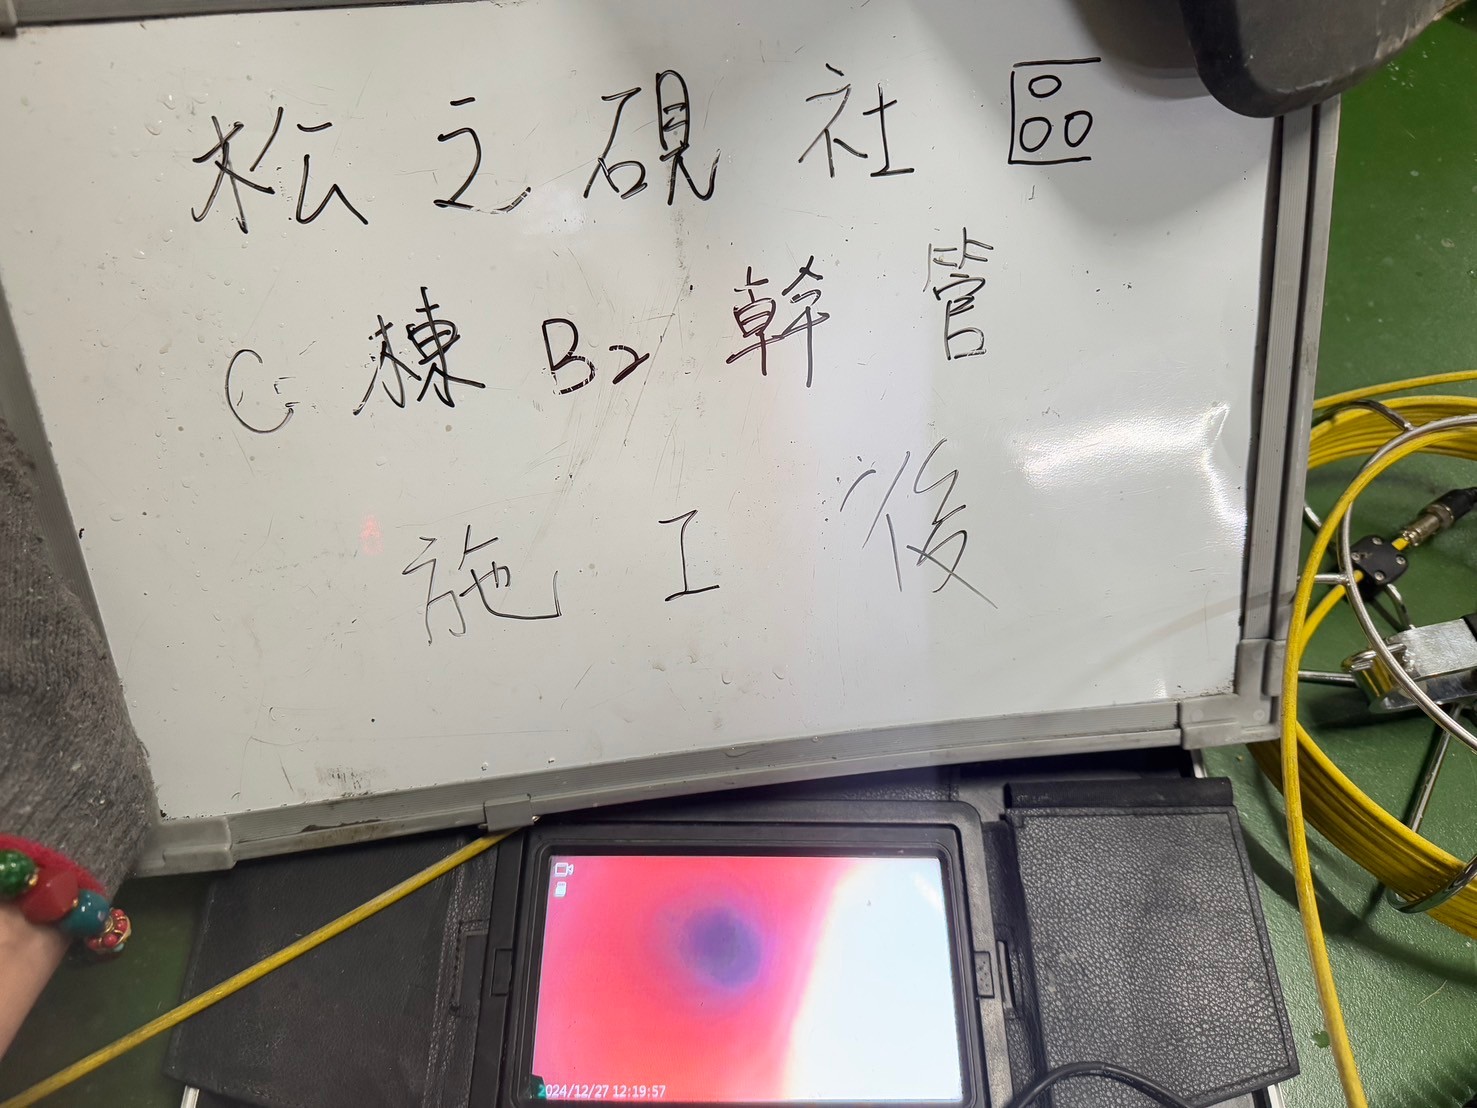 松之硯社區
C棟B2幹管
施工後
2024/12/27 12:19:57